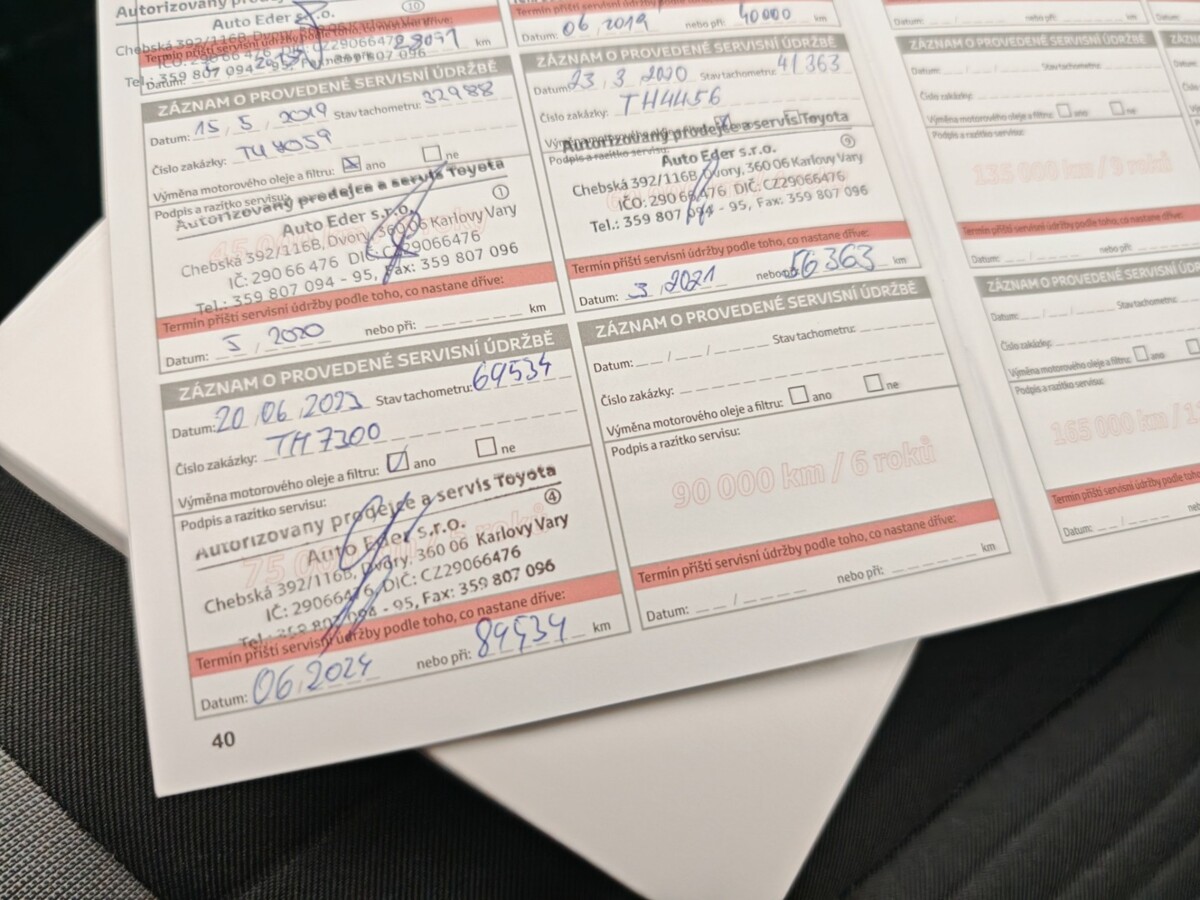 Autorizovaný
Auto Eder s.r.o.
Chebská 392/116B, Dvory,
Termín příští servisní údržby podle toho, co nastane dříve:
Tel.: 359 807 094 - 95,
Datum:
km
ZÁZNAM O PROVEDENÉ SERVISNÍ ÚDRŽBĚ
Datum: 15, 5, 2019 Stav tachometru: 32988
Číslo zakázky:
Výměna motorového oleje a filtru: ano ne
Podpis a razítko servisu:
Autorizovaný prodejce a servis Toyota
Auto Eder s.r.o. 1
Chebská 392/116B, Dvory, 360 06 Karlovy Vary
IČ: 290 66 476 DIČ: CZ29066476
Tel.: 359 807 094 - 95, Fax: 359 807 096
Termín příští servisní údržby podle toho, co nastane dříve:
Datum: 5, 2020 nebo při: km
ZÁZNAM O PROVEDENÉ SERVISNÍ ÚDRŽBĚ
Datum: 20, 06, 2023 Stav tachometru: 69534
Číslo zakázky: TH7300
Výměna motorového oleje a filtru: ano ne
Podpis a razítko servisu:
Autorizovany prodejce a servis Toyota
Auto Eder s.r.o. 4
Chebská 392/116B, Dvory, 360 06 Karlovy Vary
IČ: 29066476, DIČ: CZ29066476
Tel.: 359 807 094 - 95, Fax: 359 807 096
Termín příští servisní údržby podle toho, co nastane dříve:
Datum: 06, 2024 nebo při: 84534 km
40
Datum: 06, 2019 nebo při: 40000 km
ZÁZNAM O PROVEDENÉ SERVISNÍ ÚDRŽBĚ
Datum: 23, 3, 2020 Stav tachometru: 41363
Číslo zakázky: TH4456
Podpis a razítko servisu:
Autorizovaný prodejce a servis Toyota
Auto Eder s.r.o. 9
Chebská 392/116B, Dvory, 360 06 Karlovy Vary
IČO: 290 66 476 DIČ: CZ29066476
Tel.: 359 807 094 - 95, Fax: 359 807 096
Termín příští servisní údržby podle toho, co nastane dříve:
Datum: 3, 2021 nebo při: 56363 km
ZÁZNAM O PROVEDENÉ SERVISNÍ ÚDRŽBĚ
Datum: Stav tachometru:
Číslo zakázky:
Výměna motorového oleje a filtru: ano ne
Podpis a razítko servisu:
90 000 km / 6 roků
Termín příští servisní údržby podle toho, co nastane dříve:
Datum: nebo při: km
Datum: nebo při: km
ZÁZNAM O PROVEDENÉ SERVISNÍ ÚDRŽBĚ
Datum: Stav tachometru:
Číslo zakázky:
Výměna motorového oleje a filtru: ano ne
Podpis a razítko servisu:
135 000 km / 9 roků
Termín příští servisní údržby podle toho, co nastane dříve:
Datum: nebo při: km
ZÁZNAM O PROVEDENÉ SERVISNÍ ÚDRŽBĚ
Datum: Stav tachometru:
Číslo zakázky:
Výměna motorového oleje a filtru: ano
Podpis a razítko servisu:
165 000 km /
Termín příští servisní údržby podle toho, co nastane
Datum: